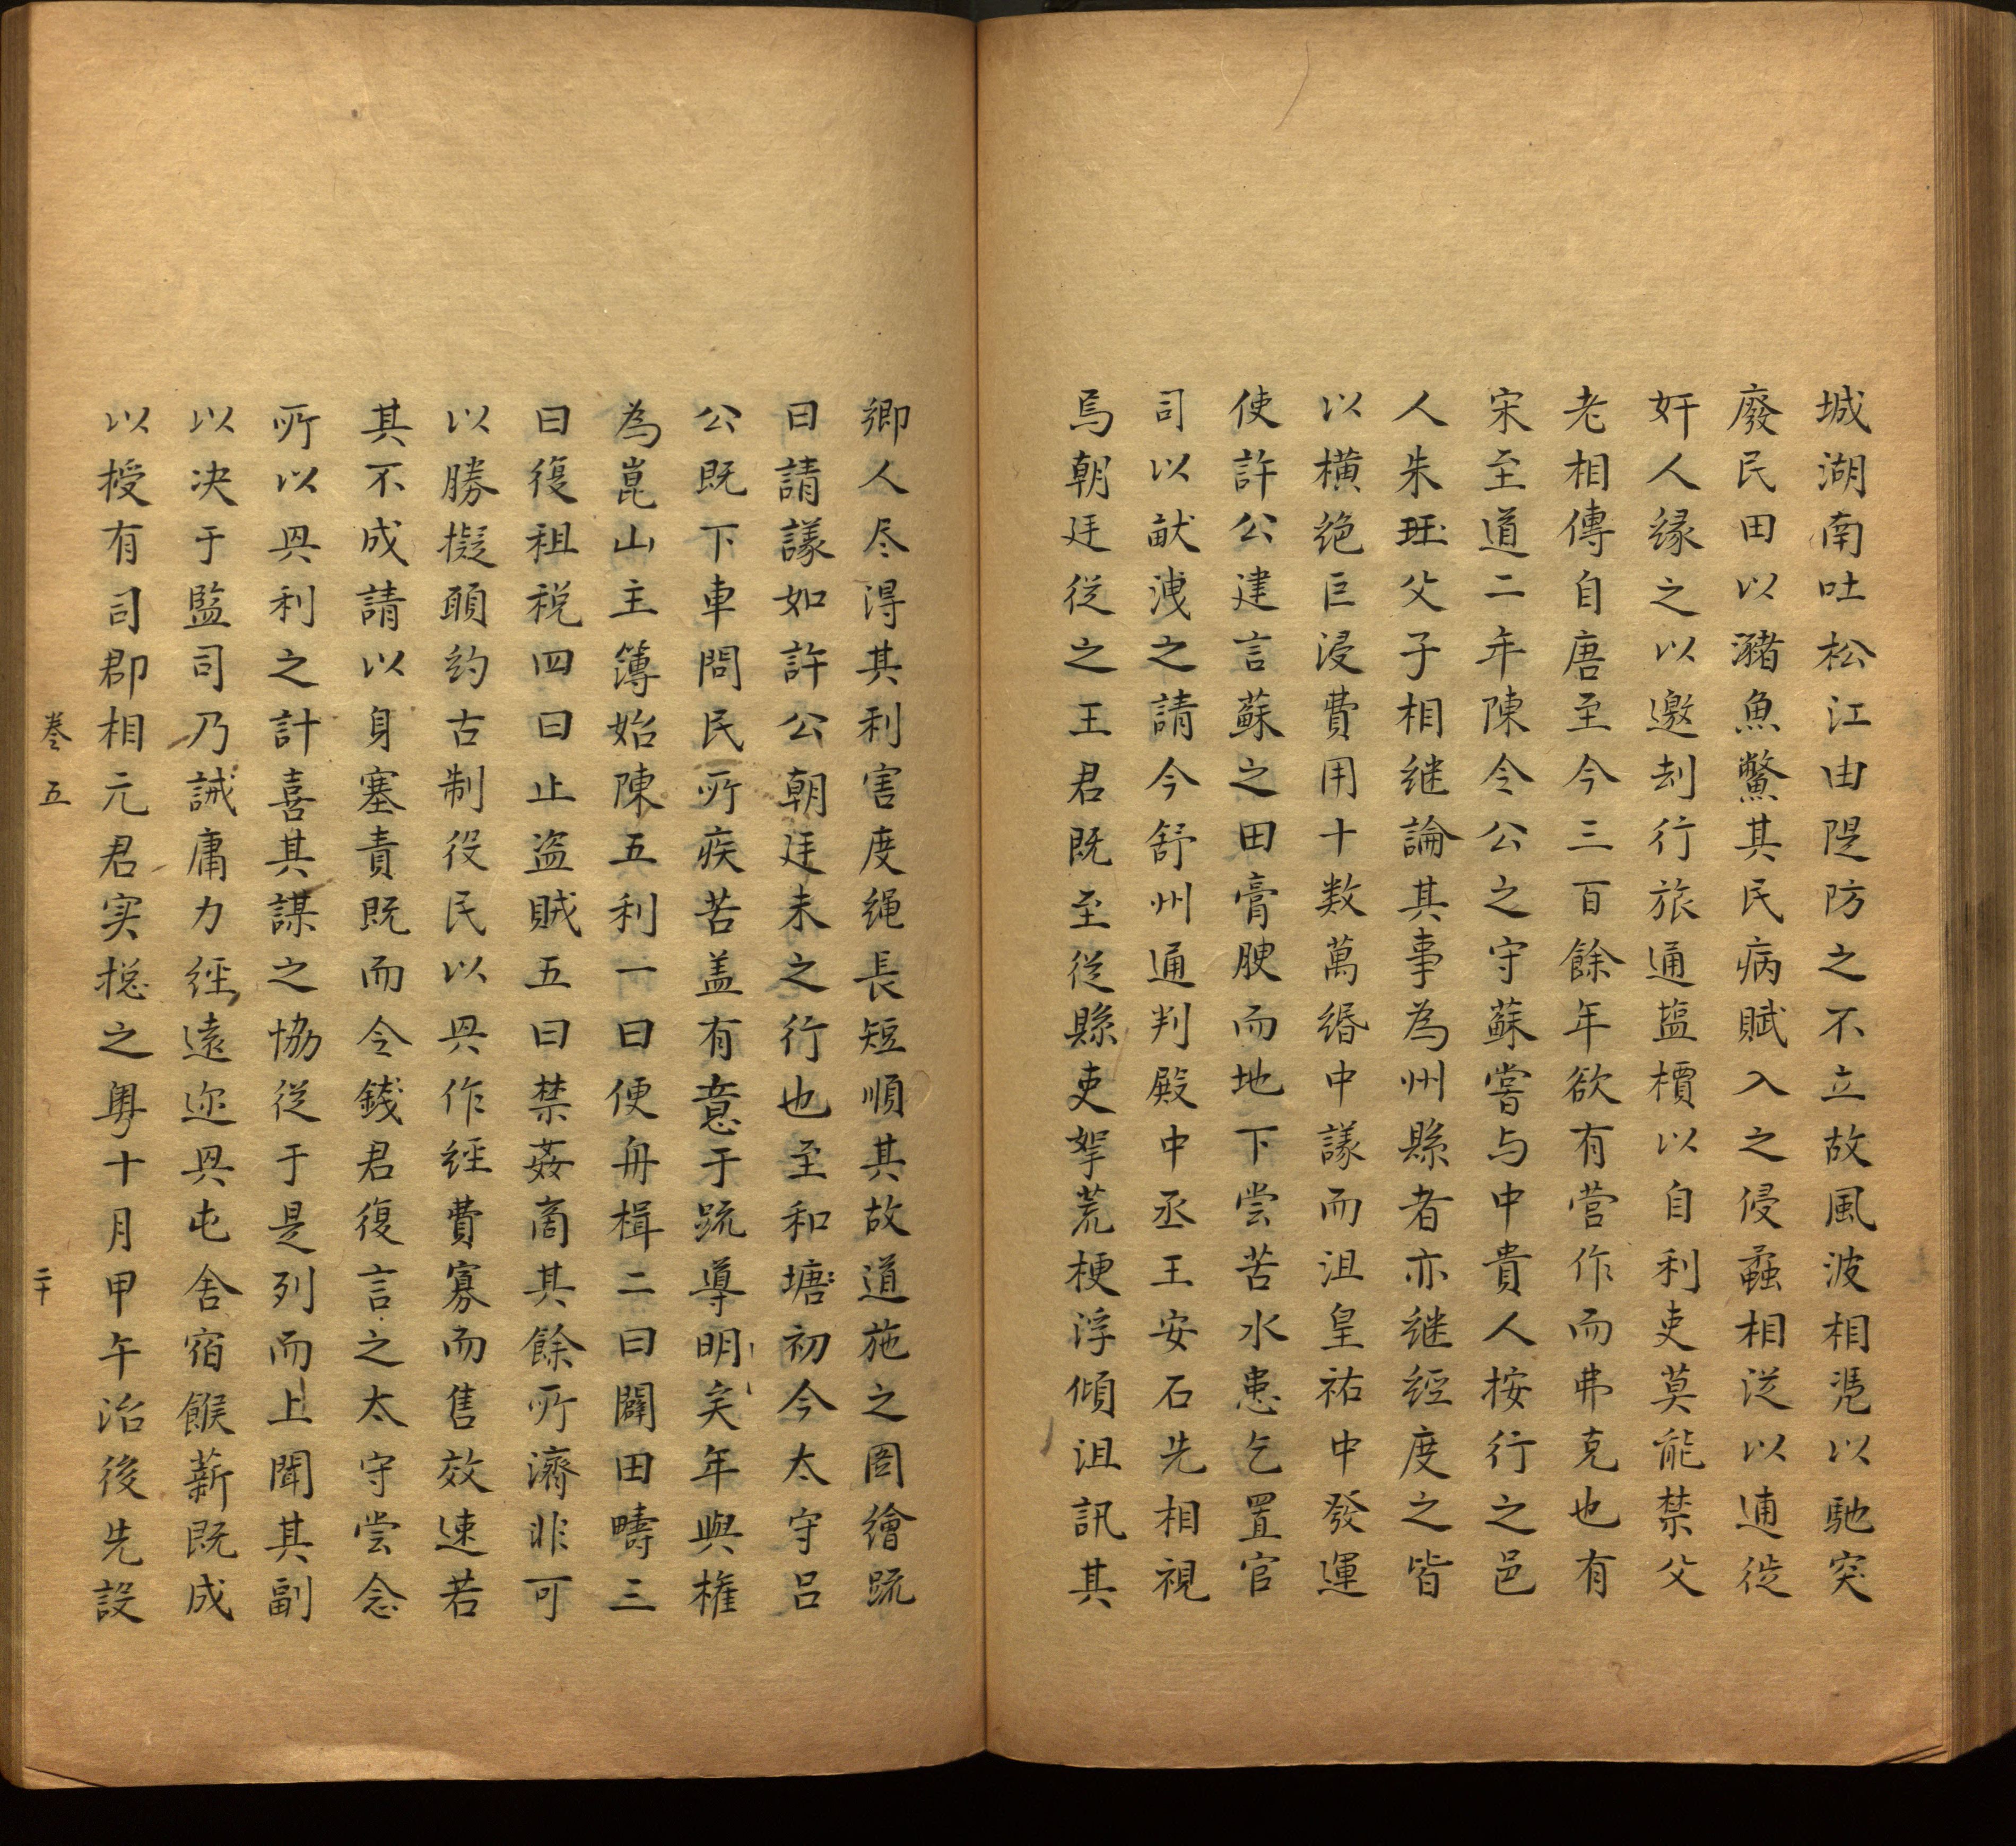 城湖南吐松江由隄防之不立故風波相凴以馳突
廢民田以瀦魚鱉其民病賦入之侵蟊相從以逋徙
奸人緣之以邀刦行旅通盐櫝以自利吏莫能禁父
老相傳自唐至今三百餘年欲有营作而弗克也有
宋至道二年陳令公之守蘇嘗与中貴人按行之邑
人朱珏父子相继論其事為州縣者亦继經度之皆
以横绝巨浸費用十数萬緡中議而沮皇祐中發運
使許公建言蘇之田膏腴而地下尝苦水患乞置官
司以献洩之請今舒州通判殿中丞王安石先相視
焉朝廷從之王君既至從縣吏拏荒梗浮傾沮訊其
卿人尽淂其利害度绳長短順其故道施之圖繪䟽
曰請議如許公朝廷未之行也至和塘初今太守吕
公既下車問民所疾苦盖有意于䟽導明矣年與榷
為崑山主簿始陳五利一曰便舟楫二曰闢田疇三
曰復租税四曰止盗賊五曰禁姦商其餘所濟非可
以勝擬頋约古制役民以兴作經費寡而售效速若
其不成請以身塞責既而令錢君復言之太守尝念
所以兴利之計喜其謀之恊從于是列而上聞其副
以决于監司乃誡庸力經遠迩兴屯舍宿餱薪既成
以授有司郡相元君实揔之粤十月甲午治後先設
卷五
二十